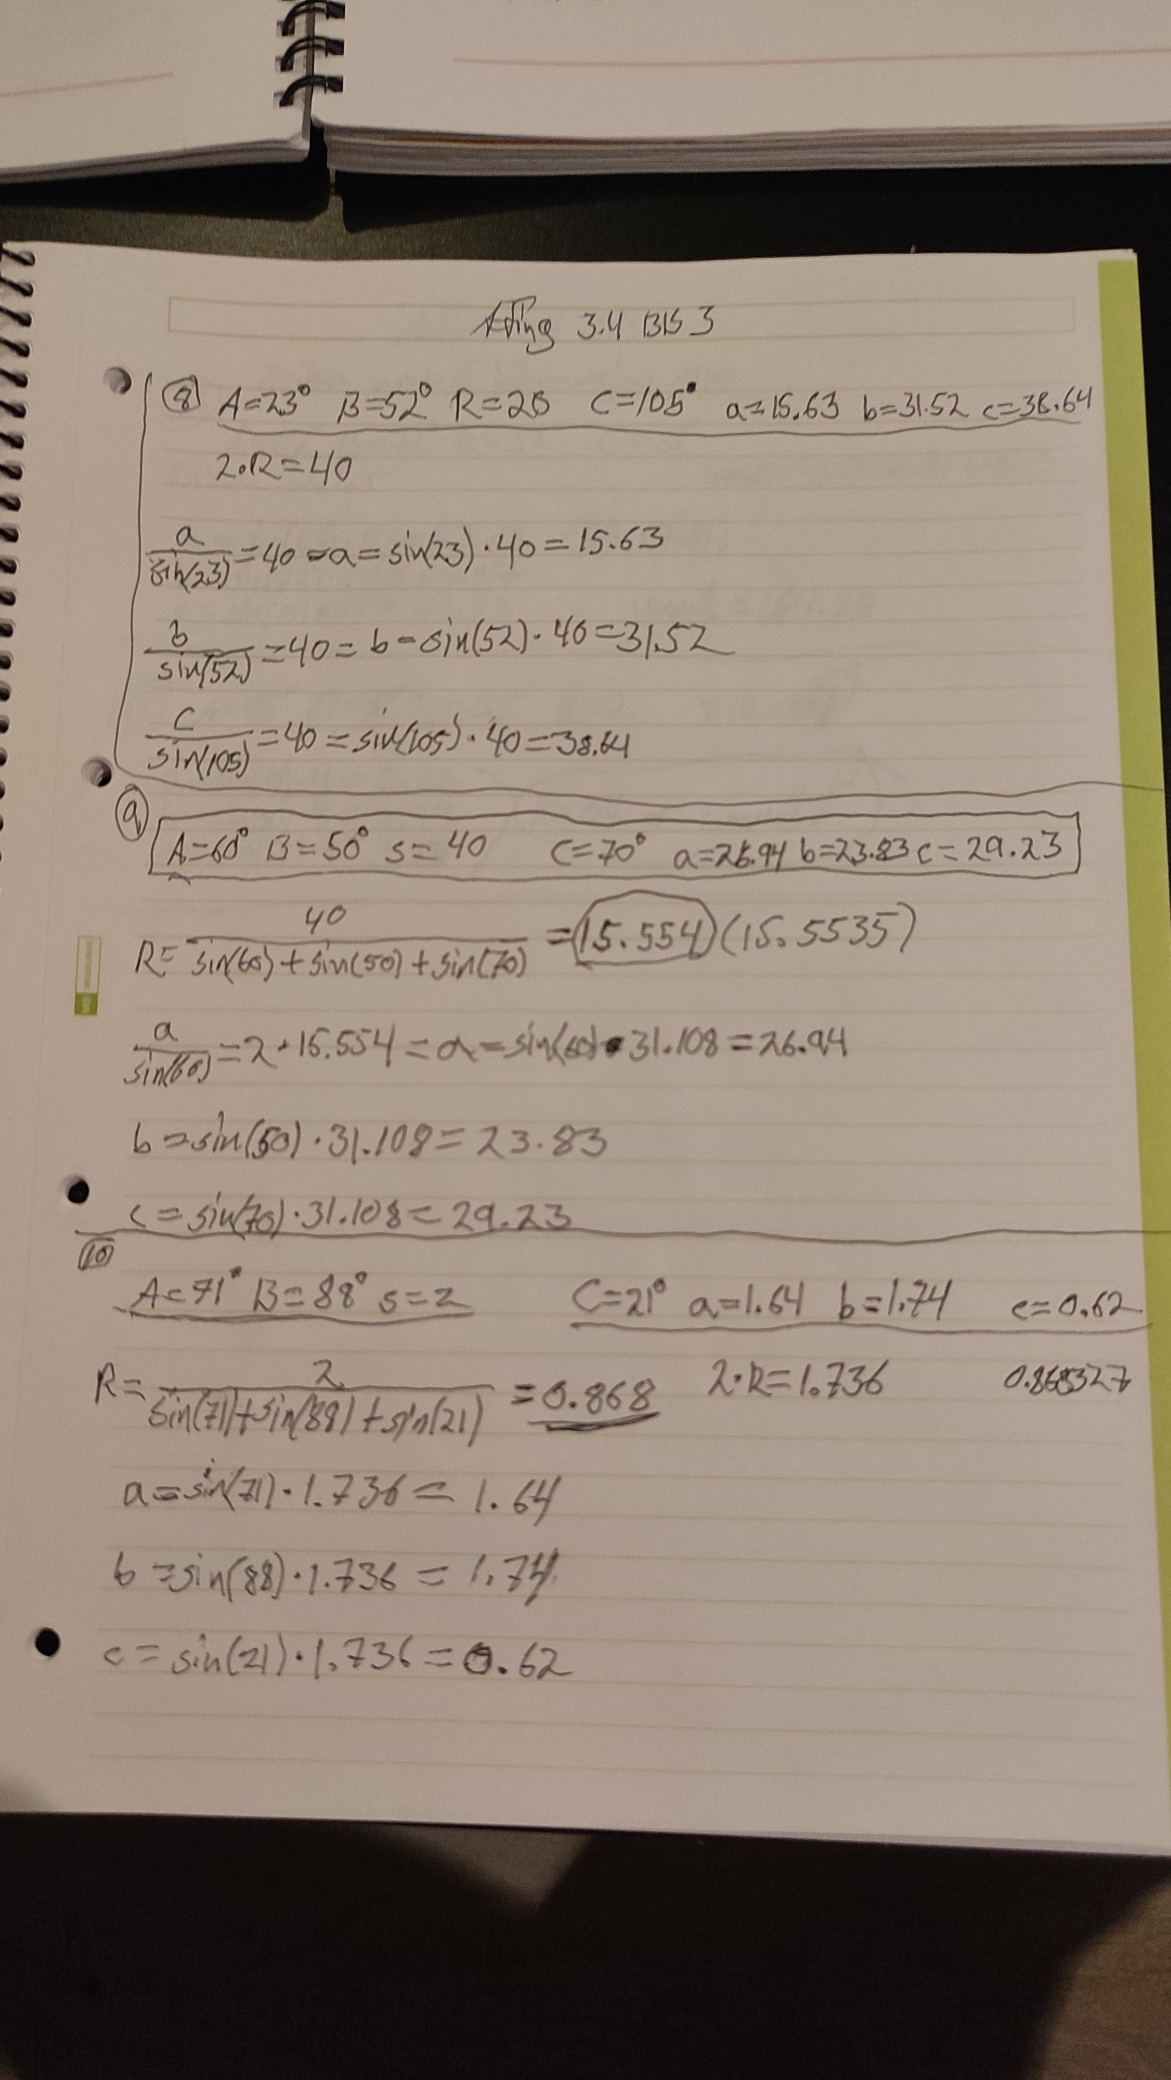 3.4 BIS 3
8 A=23° B=52° R=20 C=105° a=15.63 b=31.52 c=38.64
2·R=40
a/sin(23) = 40 = a = sin(23) · 40 = 15.63
b/sin(52) = 40 = b = sin(52) · 40 = 31.52
c/sin(105) = 40 = sin(105) · 40 = 38.64
9
A=60° B=50° s=40 C=70° a=26.94 b=23.83 c=29.23
R= 40/sin(60)+sin(50)+sin(70) = 15.554 (15.5535)
a/sin(60) = 2·15.554 = a = sin(60) · 31.108 = 26.94
b = sin(50) · 31.108 = 23.83
c = sin(70) · 31.108 = 29.23
10
A=71° B=88° s=2 C=21° a=1.64 b=1.74 c=0.62
R= 2/sin(71)+sin(88)+sin(21) = 0.868 2·R=1.736 0.868327
a = sin(71) · 1.736 = 1.64
b = sin(88) · 1.736 = 1.74
c = sin(21) · 1.736 = 0.62